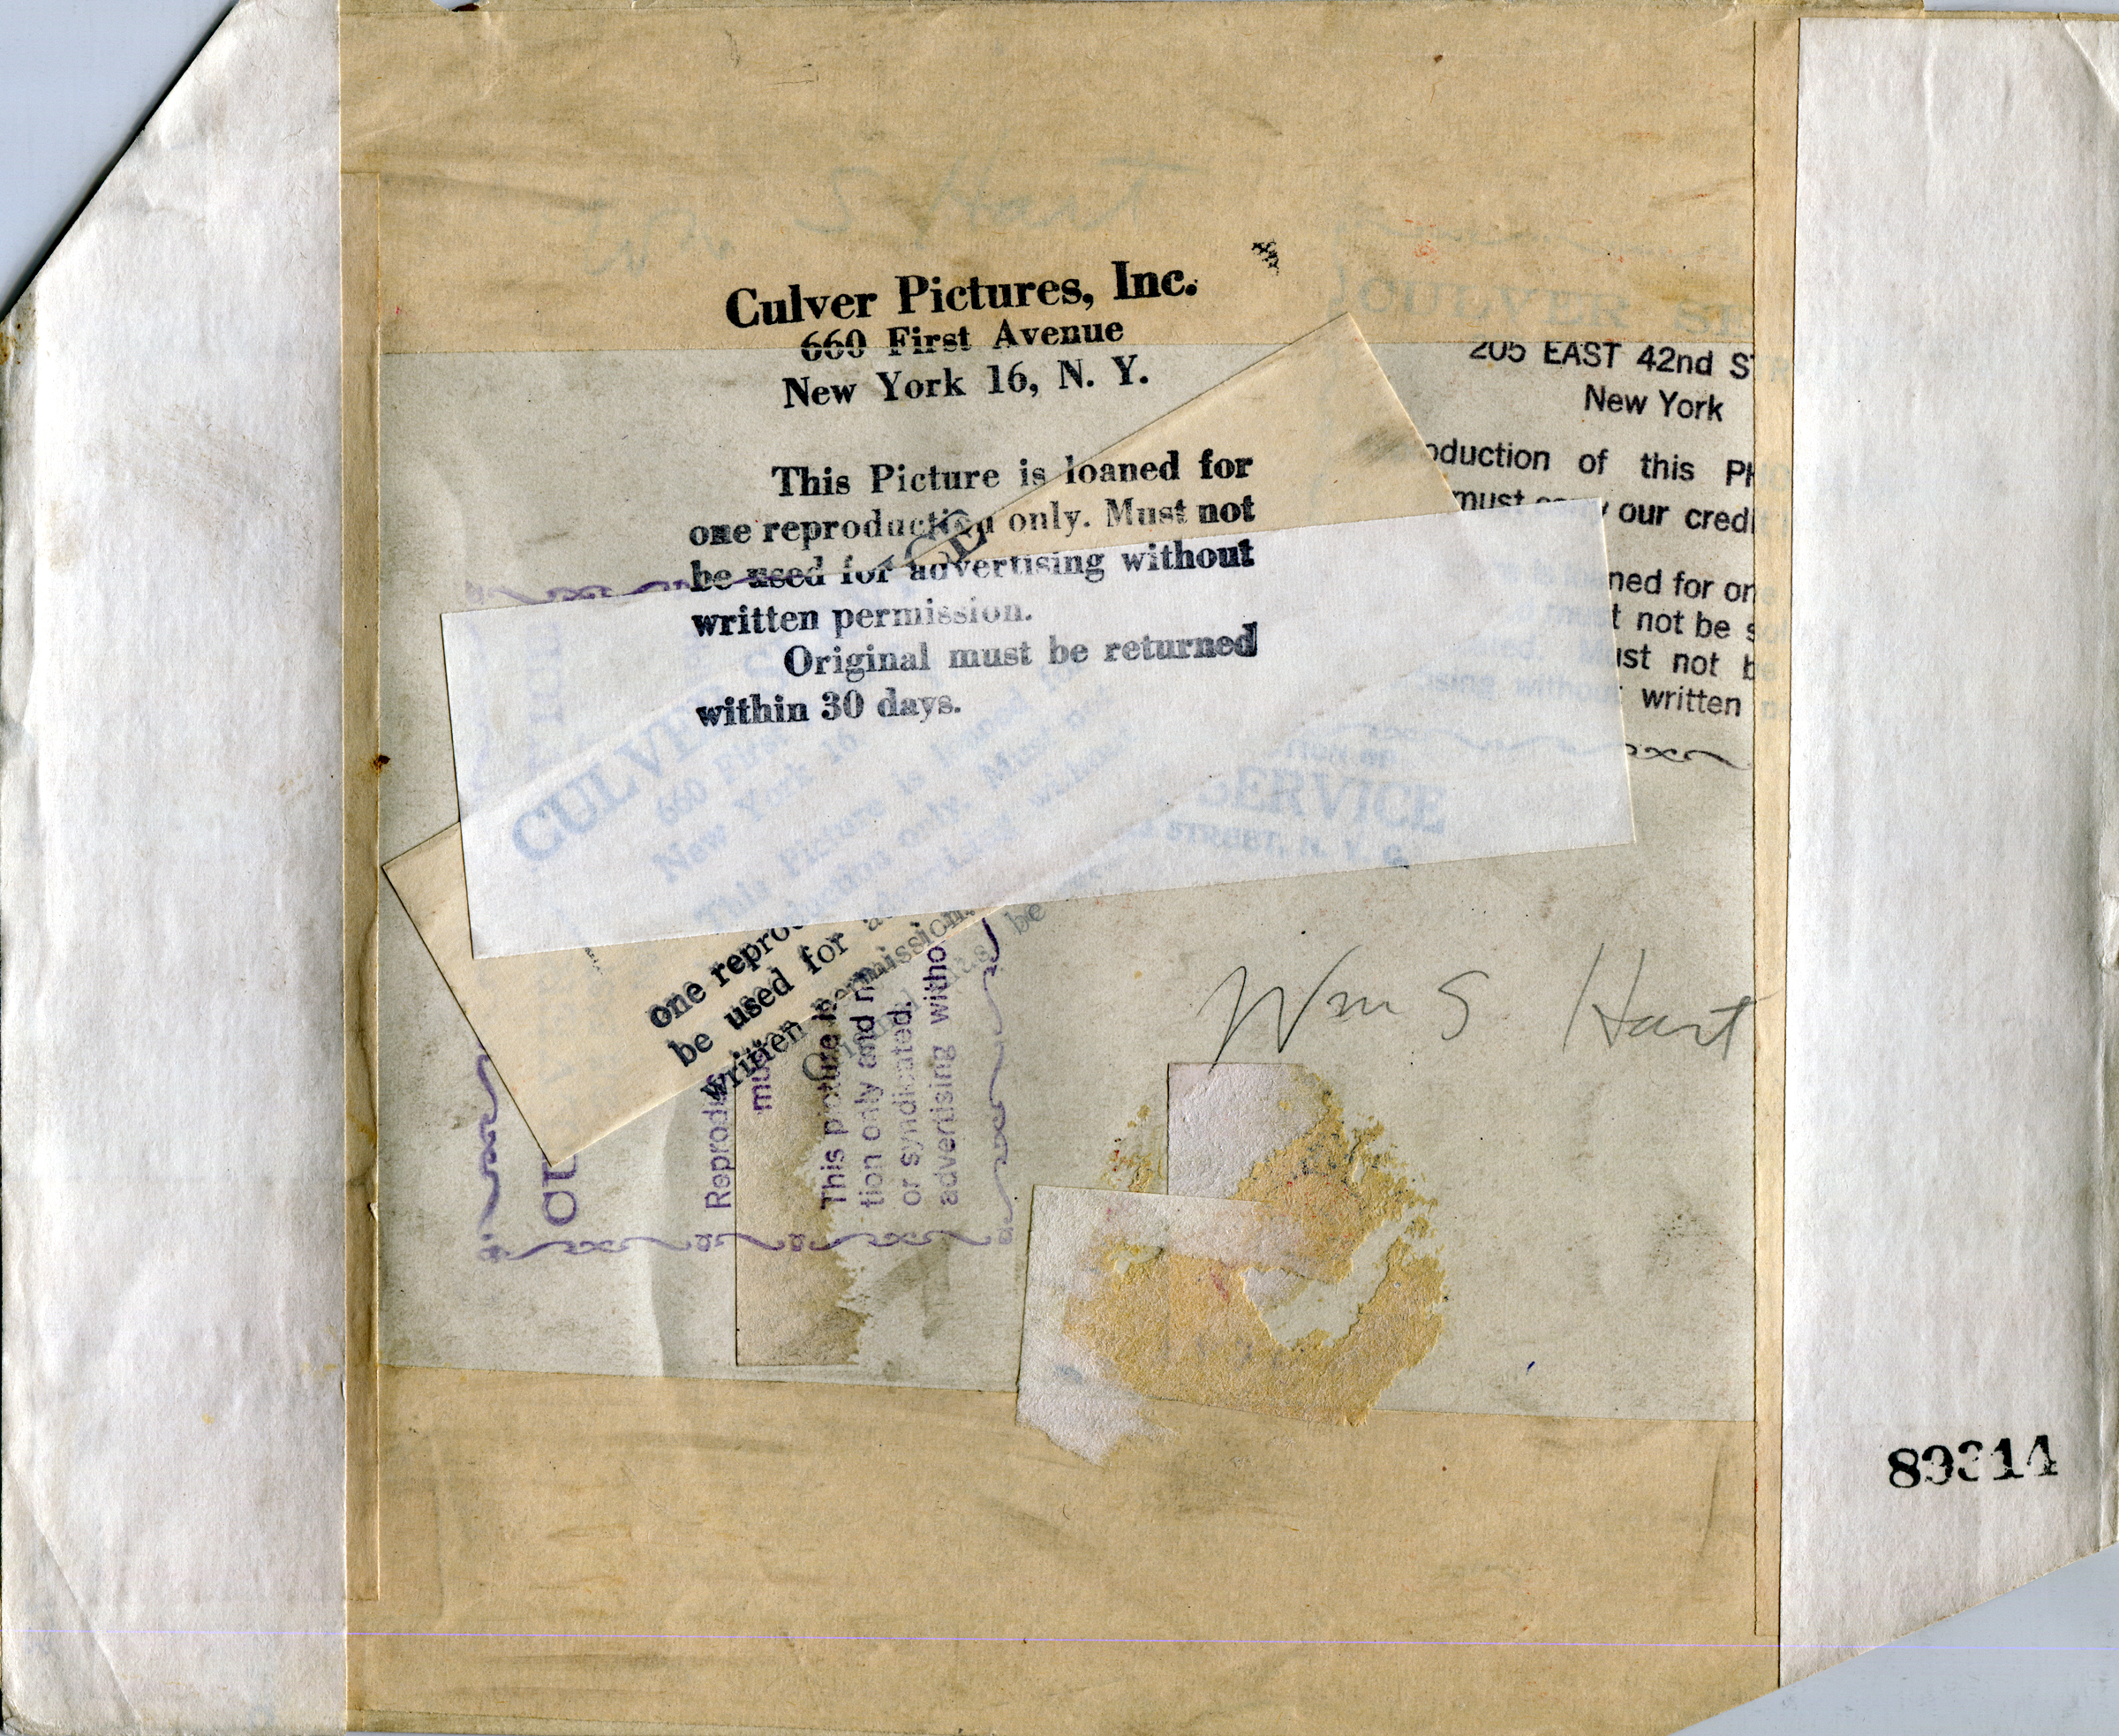 Wm S Hart
Culver Pictures, Inc.
660 First Avenue
New York 16, N. Y.
This Picture is loaned for
one reproduction only. Must not
be used for advertising without
written permission.
Original must be returned
within 30 days.
CULVER SE
205 EAST 42nd ST
New York
oduction of this PH
must carry our credi
ned for on
t not be s
ust not b
sing without written
SERVICE
STREET, N. Y. C.
CULVER S
660 First
New York 16
This Picture is loaned for
one reproduction only. Must not
be used for advertising without
written permission.
be
Reprodu
mu
This picture is
tion only and n
or syndicated.
advertising witho
Wm S Hart
89314